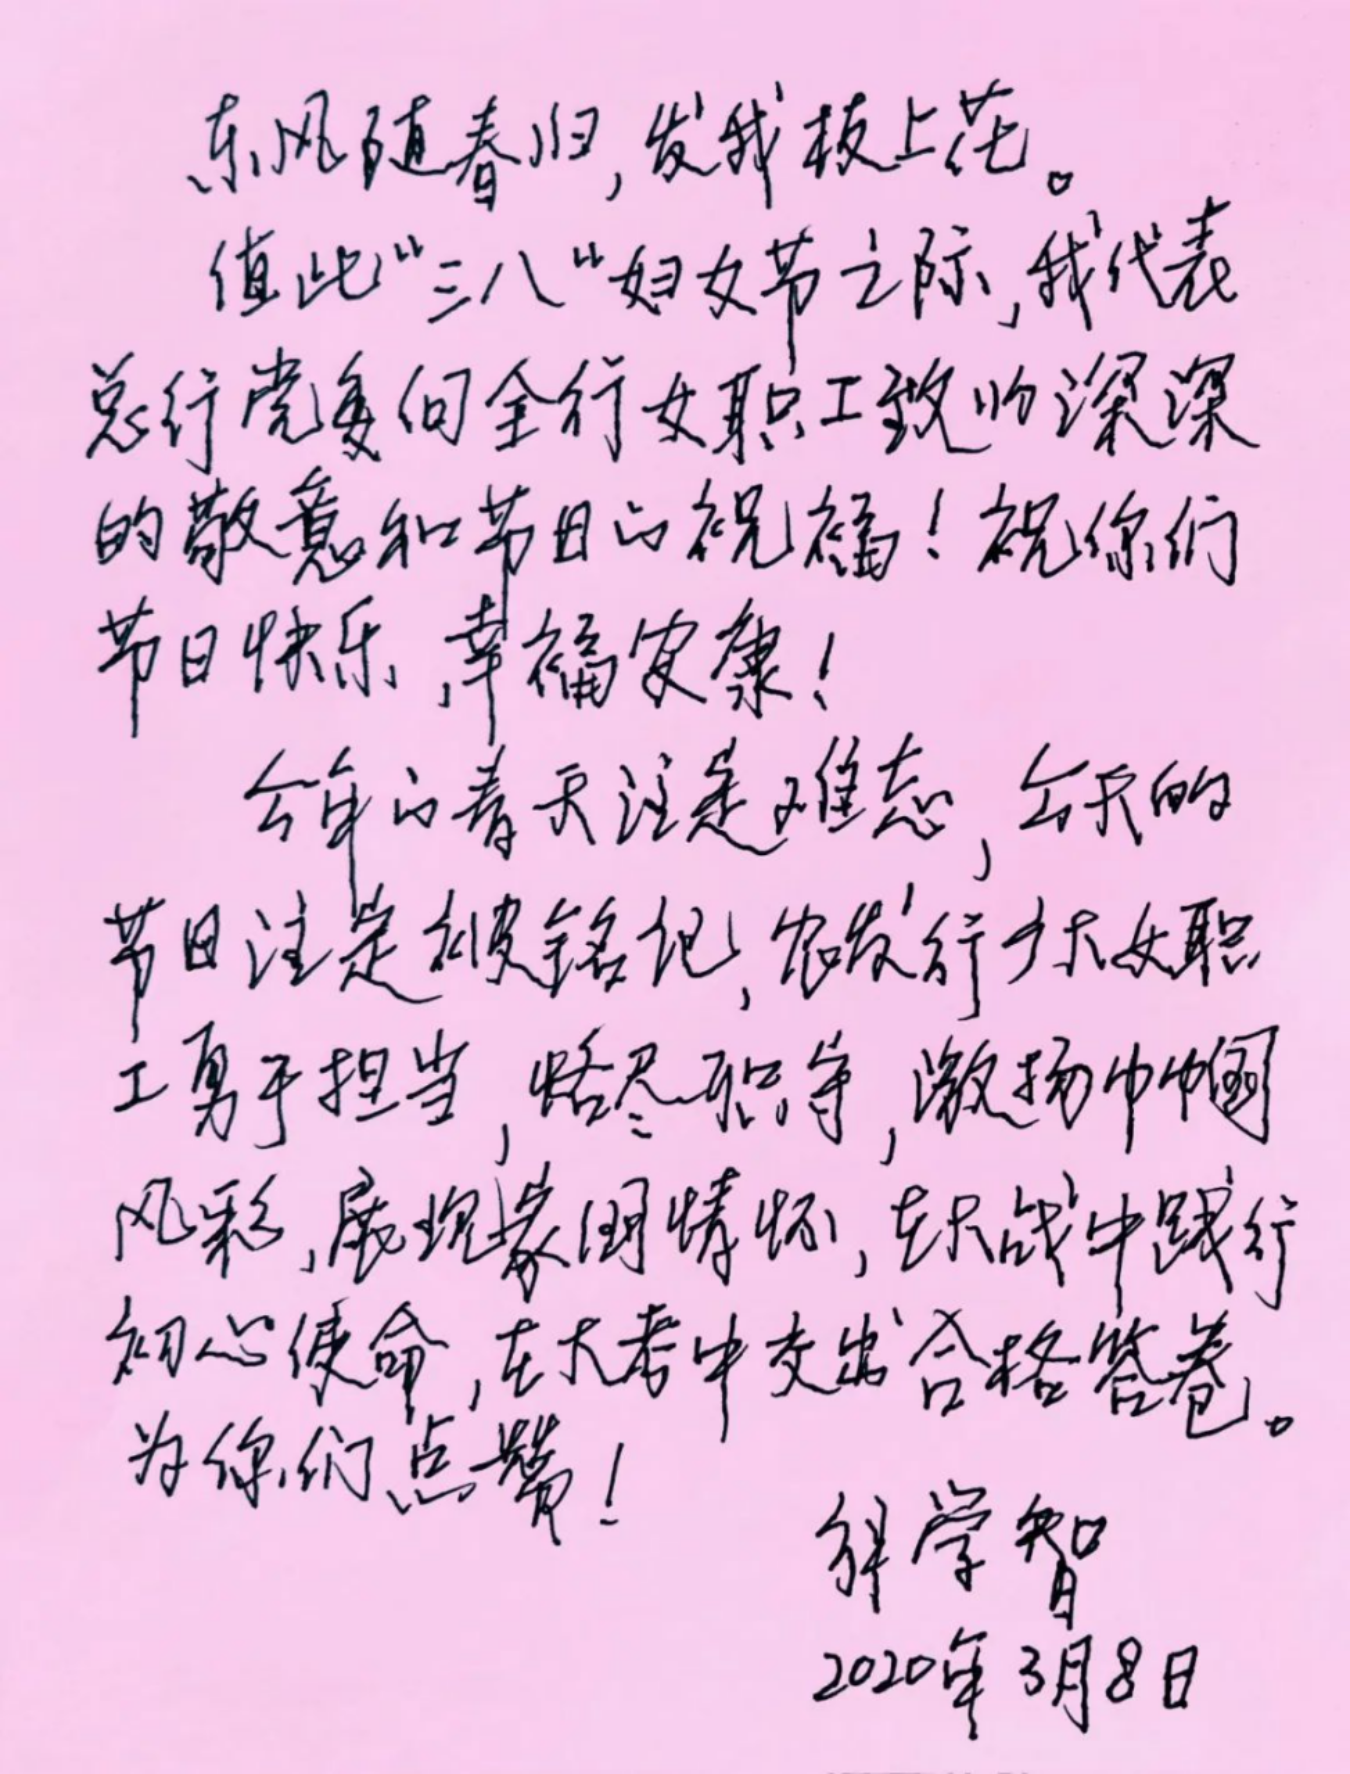 东风随春归，发我枝上花。
值此“三八“妇女节之际，我代表
总行党委向全行女职工致以深深
的敬意和节日的祝福！祝你们
节日快乐，幸福安康！
今年的春天注定难忘，今天的
节日注定被铭记，农发行广大女职
工勇于担当，恪尽职守，激扬巾帼
风彩，展现家国情怀，在大战中践行
初心使命，在大考中交出合格答卷。
为你们点赞！
解学智
2020年3月8日